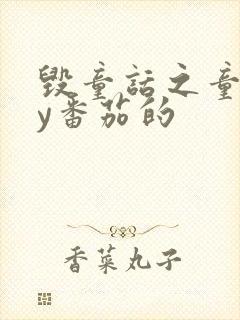 毁童话之童
y番茄的
香菜丸子